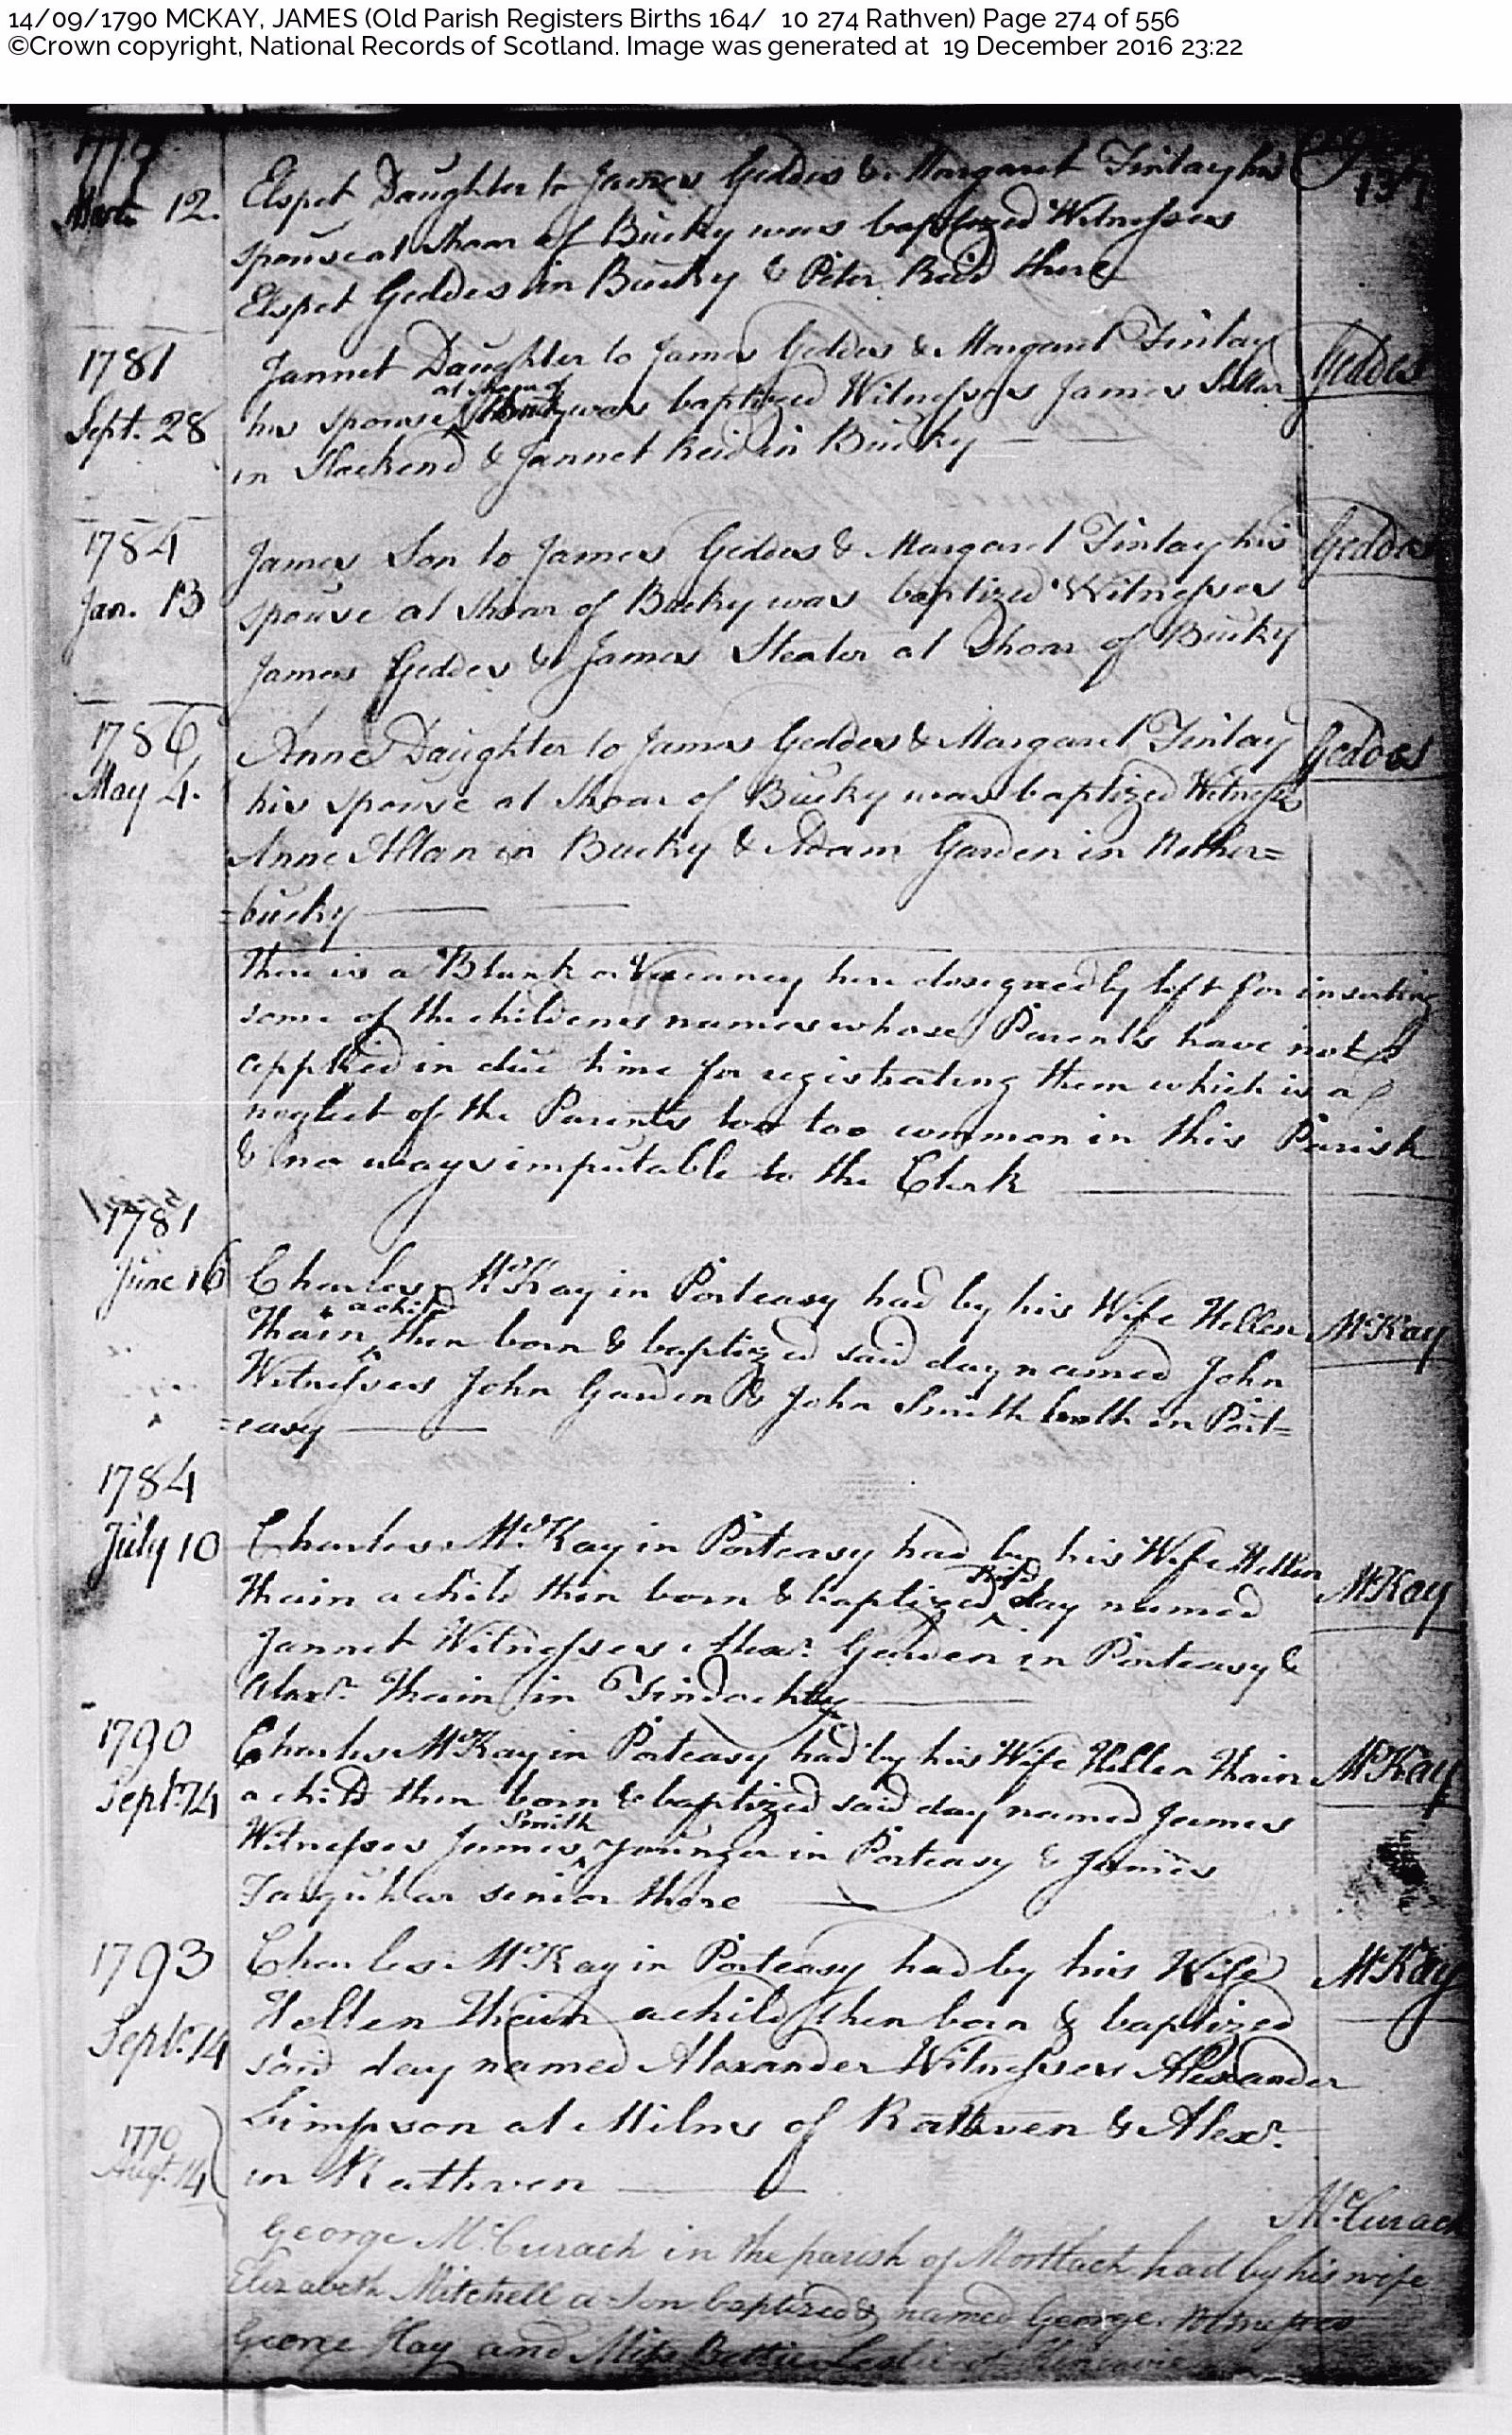 14/09/1790 MCKAY, JAMES (Old Parish Registers Births 164/ 10 274 Rathven) Page 274 of 556
©Crown copyright, National Records of Scotland. Image was generated at 19 December 2016 23:22
137
12. Elspet Daughter to James Geddes & Margaret Finlay his
spouse at Shoar of Bucky was baptized Witnesses
Elspet Geddes in Bucky & Peter Reid there
1781
Sept. 28
Jannet Daughter to James Geddes & Margaret Finlay
Geddes
at Shoar of
his spouse was baptized Witnesses James Sellar
in Slackend & Jannet Reid in Bucky
1784
Jan. 13
James Son to James Geddes & Margaret Finlay his
Geddes
spouse at Shoar of Bucky was baptized Witnesses
James Geddes & James Sleater at Shoar of Bucky
1786
May 4.
Anne Daughter to James Geddes & Margaret Finlay
Geddes
his spouse at Shoar of Bucky was baptized Witnesses
Anne Allan in Bucky & Adam Garden in Nether=
=bucky
There is a Blank or Vacancy here designedly left for inserting
some of the childrens names whose Parents have not
applied in due time for registrating them which is a
neglect of the Parents too too common in this Parish
& no ways imputable to the Clerk
1781
June 16
Charles McKay in Porteasy had by his Wife Hellen
McKay
a child
Thain then born & baptized said day named John
Witnesses John Garden & John Smith both in Port=
=easy
1784
July 10
Charles McKay in Porteasy had by his Wife Hellen
McKay
said
Thain a child then born & baptized day named
Jannet Witnesses Alexr. Garden in Porteasy &
Alexr. Thain in Findochty
1790
Sept. 14
Charles McKay in Porteasy had by his Wife Hellen Thain
McKay
a child then born & baptized said day named James
Smith
Witnesses James younger in Porteasy & James
Farquhar senior there
1793
Sept. 14
Charles McKay in Porteasy had by his Wife
McKay
Hellen Thain a child then born & baptized
said day named Alexander Witnesses Alexander
Simpson at Milns of Rathven & Alexr.
in Rathven
1770
Augt. 14
McCurach
George McCurach in the parish of Mortlach had by his wife
Elizabeth Mitchell a Son baptized & named George. Witnesses
George Hay and Miss Leslie of